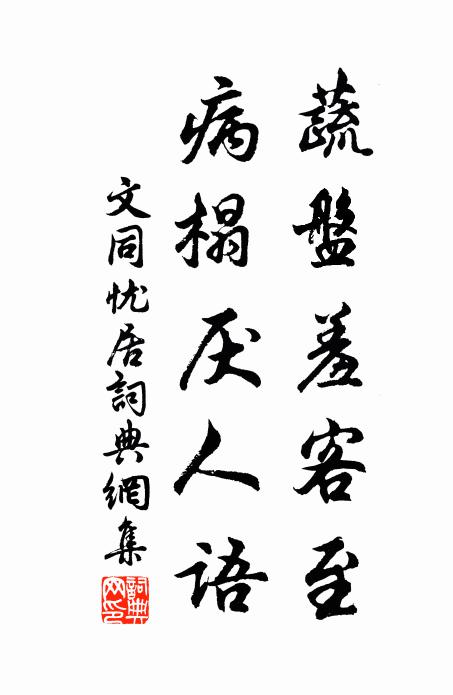 蔬盤羞客至
病榻厌人语
文同忧居詞典網集
詞典網印